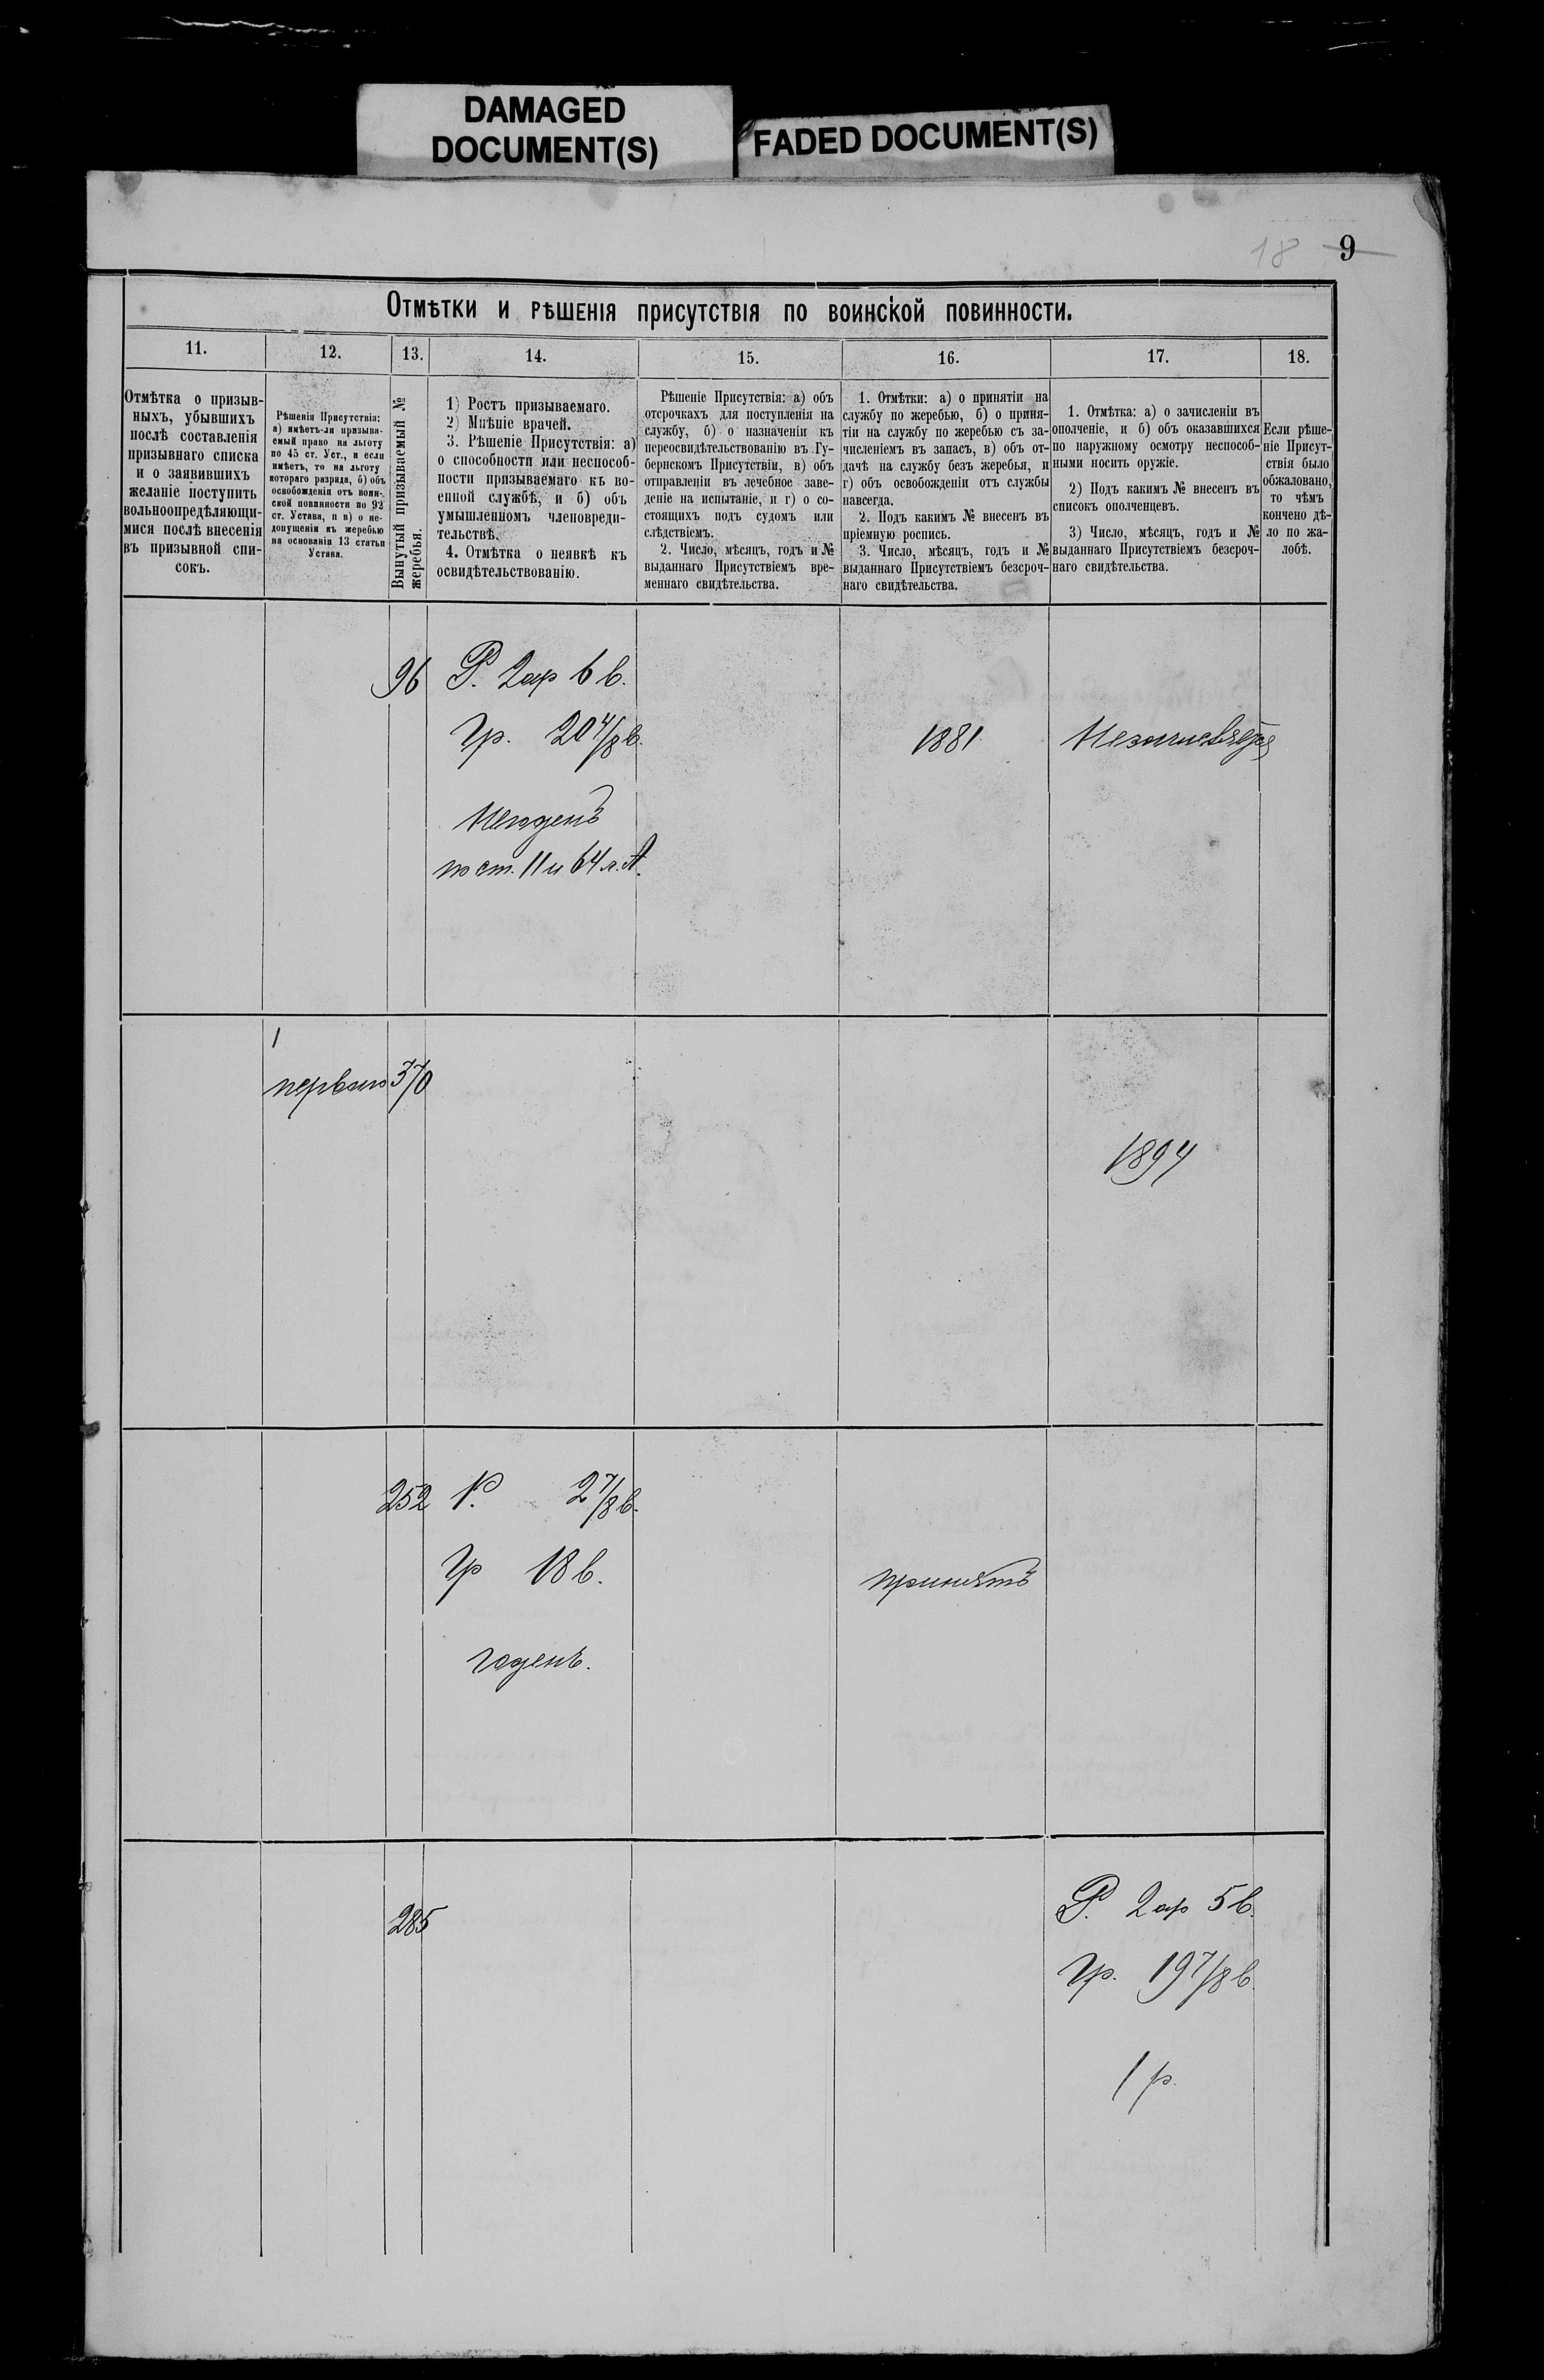 DAMAGED
DOCUMENT(S)
FADED DOCUMENT(S)
18 9
Отмѣтки и рѣшенія присутствія по воинской повинности.
11. 12. 13. 14. 15. 16. 17. 18.
Отмѣтка о призыв-
ныхъ, убывшихъ
послѣ составленія
призывнаго списка
и о заявившихъ
желаніе поступить
вольноопредѣляющи-
мися послѣ внесенія
въ призывной спи-
сокъ.
Рѣшенія Присутствія:
а) имѣетъ-ли призыва-
емый право на льготу
по 45 ст. Уст., и если
имѣетъ, то на льготу
котораго разряда, б) объ
освобожденіи отъ воин-
ской повинности по 92
ст. Устава, и в) о не-
допущеніи къ жеребью
на основаніи 13 статьи
Устава.
Вынутый призываемый №
жеребья.
1) Ростъ призываемаго.
2) Мнѣніе врачей.
3. Рѣшеніе Присутствія: а)
о способности или неспособ-
ности призываемаго къ во-
енной службѣ, и б) объ
умышленномъ членовреди-
тельствѣ.
4. Отмѣтка о неявкѣ къ
освидѣтельствованію.
Рѣшеніе Присутствія: а) объ
отсрочкахъ для поступленія на
службу, б) о назначеніи къ
переосвидѣтельствованію въ Гу-
бернскомъ Присутствіи, в) объ
отправленіи въ лечебное заве-
деніе на испытаніе, и г) о со-
стоящихъ подъ судомъ или
слѣдствіемъ.
2. Число, мѣсяцъ, годъ и №
выданнаго Присутствіемъ вре-
меннаго свидѣтельства.
1. Отмѣтки: а) о принятіи на
службу по жеребью, б) о приня-
тіи на службу по жеребью съ за-
численіемъ въ запасъ, в) объ от-
дачѣ на службу безъ жеребья, и
г) объ освобожденіи отъ службы
навсегда.
2. Подъ какимъ № внесенъ въ
пріемную роспись.
3. Число, мѣсяцъ, годъ и №
выданнаго Присутствіемъ безсроч-
наго свидѣтельства.
1. Отмѣтка: а) о зачисленіи въ
ополченіе, и б) объ оказавшихся
по наружному осмотру неспособ-
ными носить оружіе.
2) Подъ какимъ № внесенъ въ
списокъ ополченцевъ.
3) Число, мѣсяцъ, годъ и №
выданнаго Присутствіемъ безсроч-
наго свидѣтельства.
Если рѣше-
ніе Присут-
ствія было
обжаловано,
то чѣмъ
кончено дѣ-
ло по жа-
лобѣ.
96 Р. 2ар 6 в.
Гр. 20 4/8 в. 1881
Негоденъ
по ст. 11 и 64 л. А.
1
перваго 370
1894
252 Р. 2 7/8 в.
Гр 18 в. принятъ
годенъ.
285 Р. 2 ар 5 в.
Гр. 19 7/8 в.
1 р.